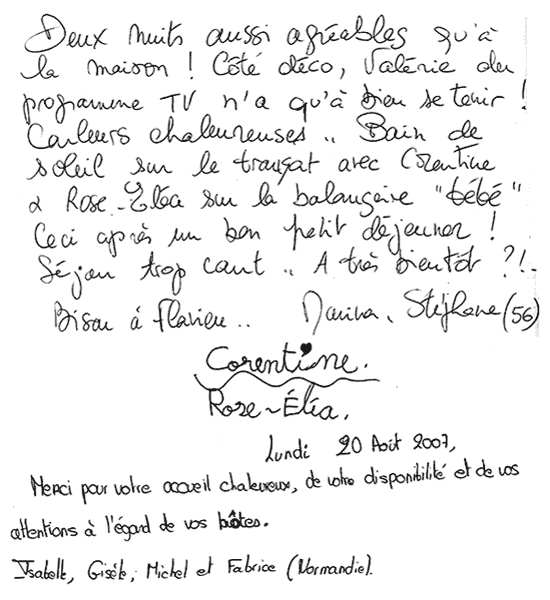 Deux nuits aussi agréables qu'à
la maison ! Côté déco, Valérie du
programme TV n'a qu'à bien se tenir !
Couleurs chaleureuses .. Bain de
soleil sur le transat avec Corentine
& Rose-Eléa sur la balançoire "bébé"
Ceci après un bon petit déjeuner !
Séjour trop court .. A très bientôt ?!.
Bisou à Flavien .. Marina, Stéphane (56)
Corentine.
Rose-Éléa.
Lundi 20 Août 2007,
Merci pour votre accueil chaleureux, de votre disponibilité et de vos
attentions à l'égard de vos hôtes.
Isabelle, Gisèle, Michel et Fabrice (Normandie).